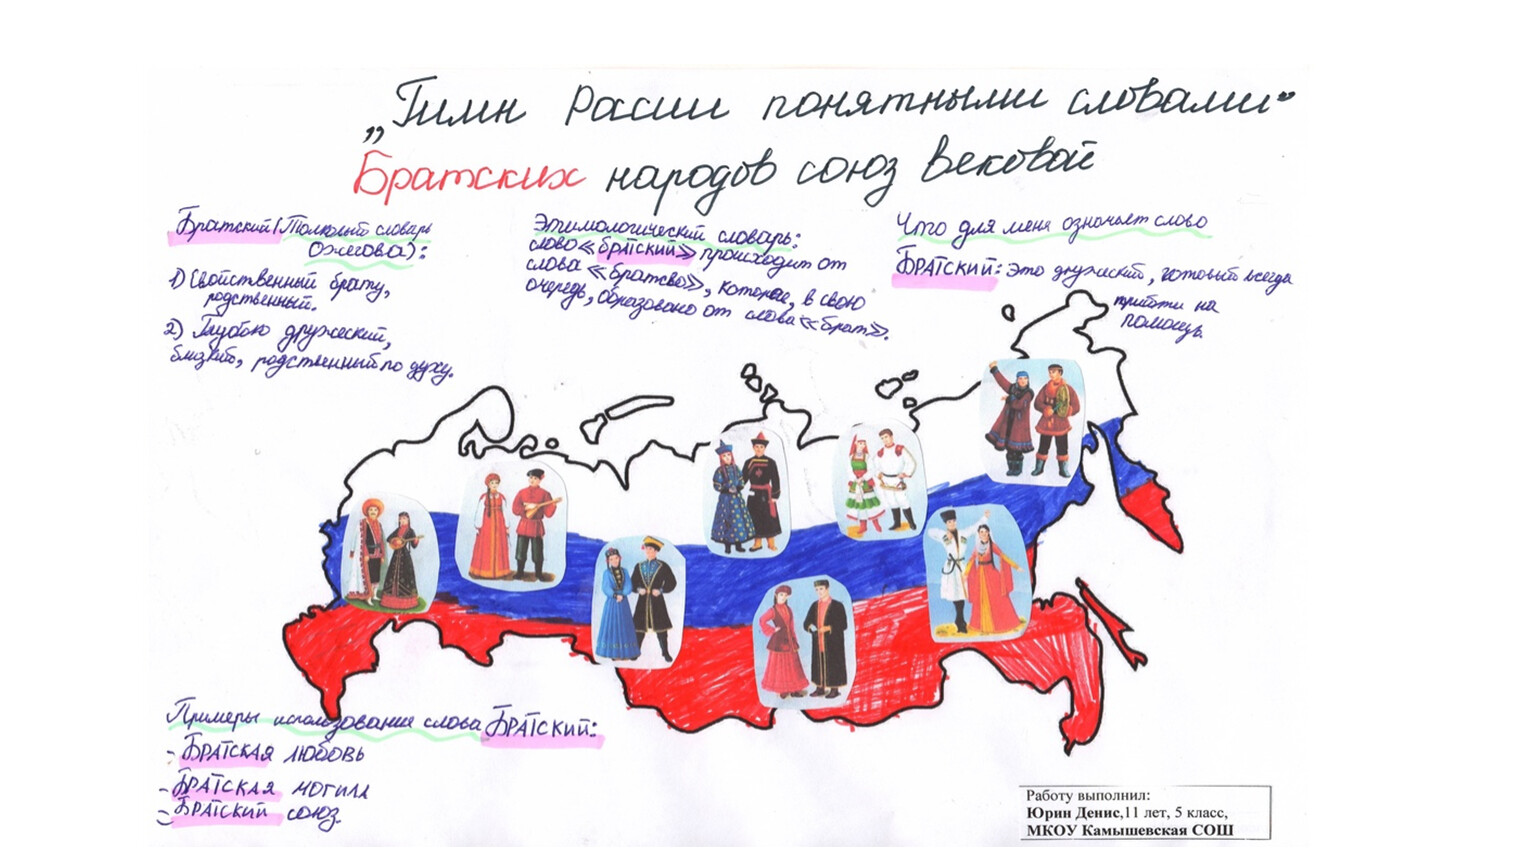 „Гимн России понятными словами“
Братских народов союз вековой
Братский (Толковый словарь
Ожегова):
1) Свойственный брату,
родственный.
2) Глубоко дружеский,
близкий, родственный по духу.
Этимологический словарь:
слово «братский» происходит от
слова «братство», которое, в свою
очередь, образовано от слова «брат».
Что для меня означает слово
БРАТСКИЙ: это дружеский, готовый всегда
прийти на
помощь.
Примеры использование слова БРАТСКИЙ:
- БРАТСКАЯ ЛЮБОВЬ
- БРАТСКАЯ МОГИЛА
- БРАТСКИЙ СОЮЗ.
Работу выполнил:
Юрин Денис,11 лет, 5 класс,
МКОУ Камышевская СОШ